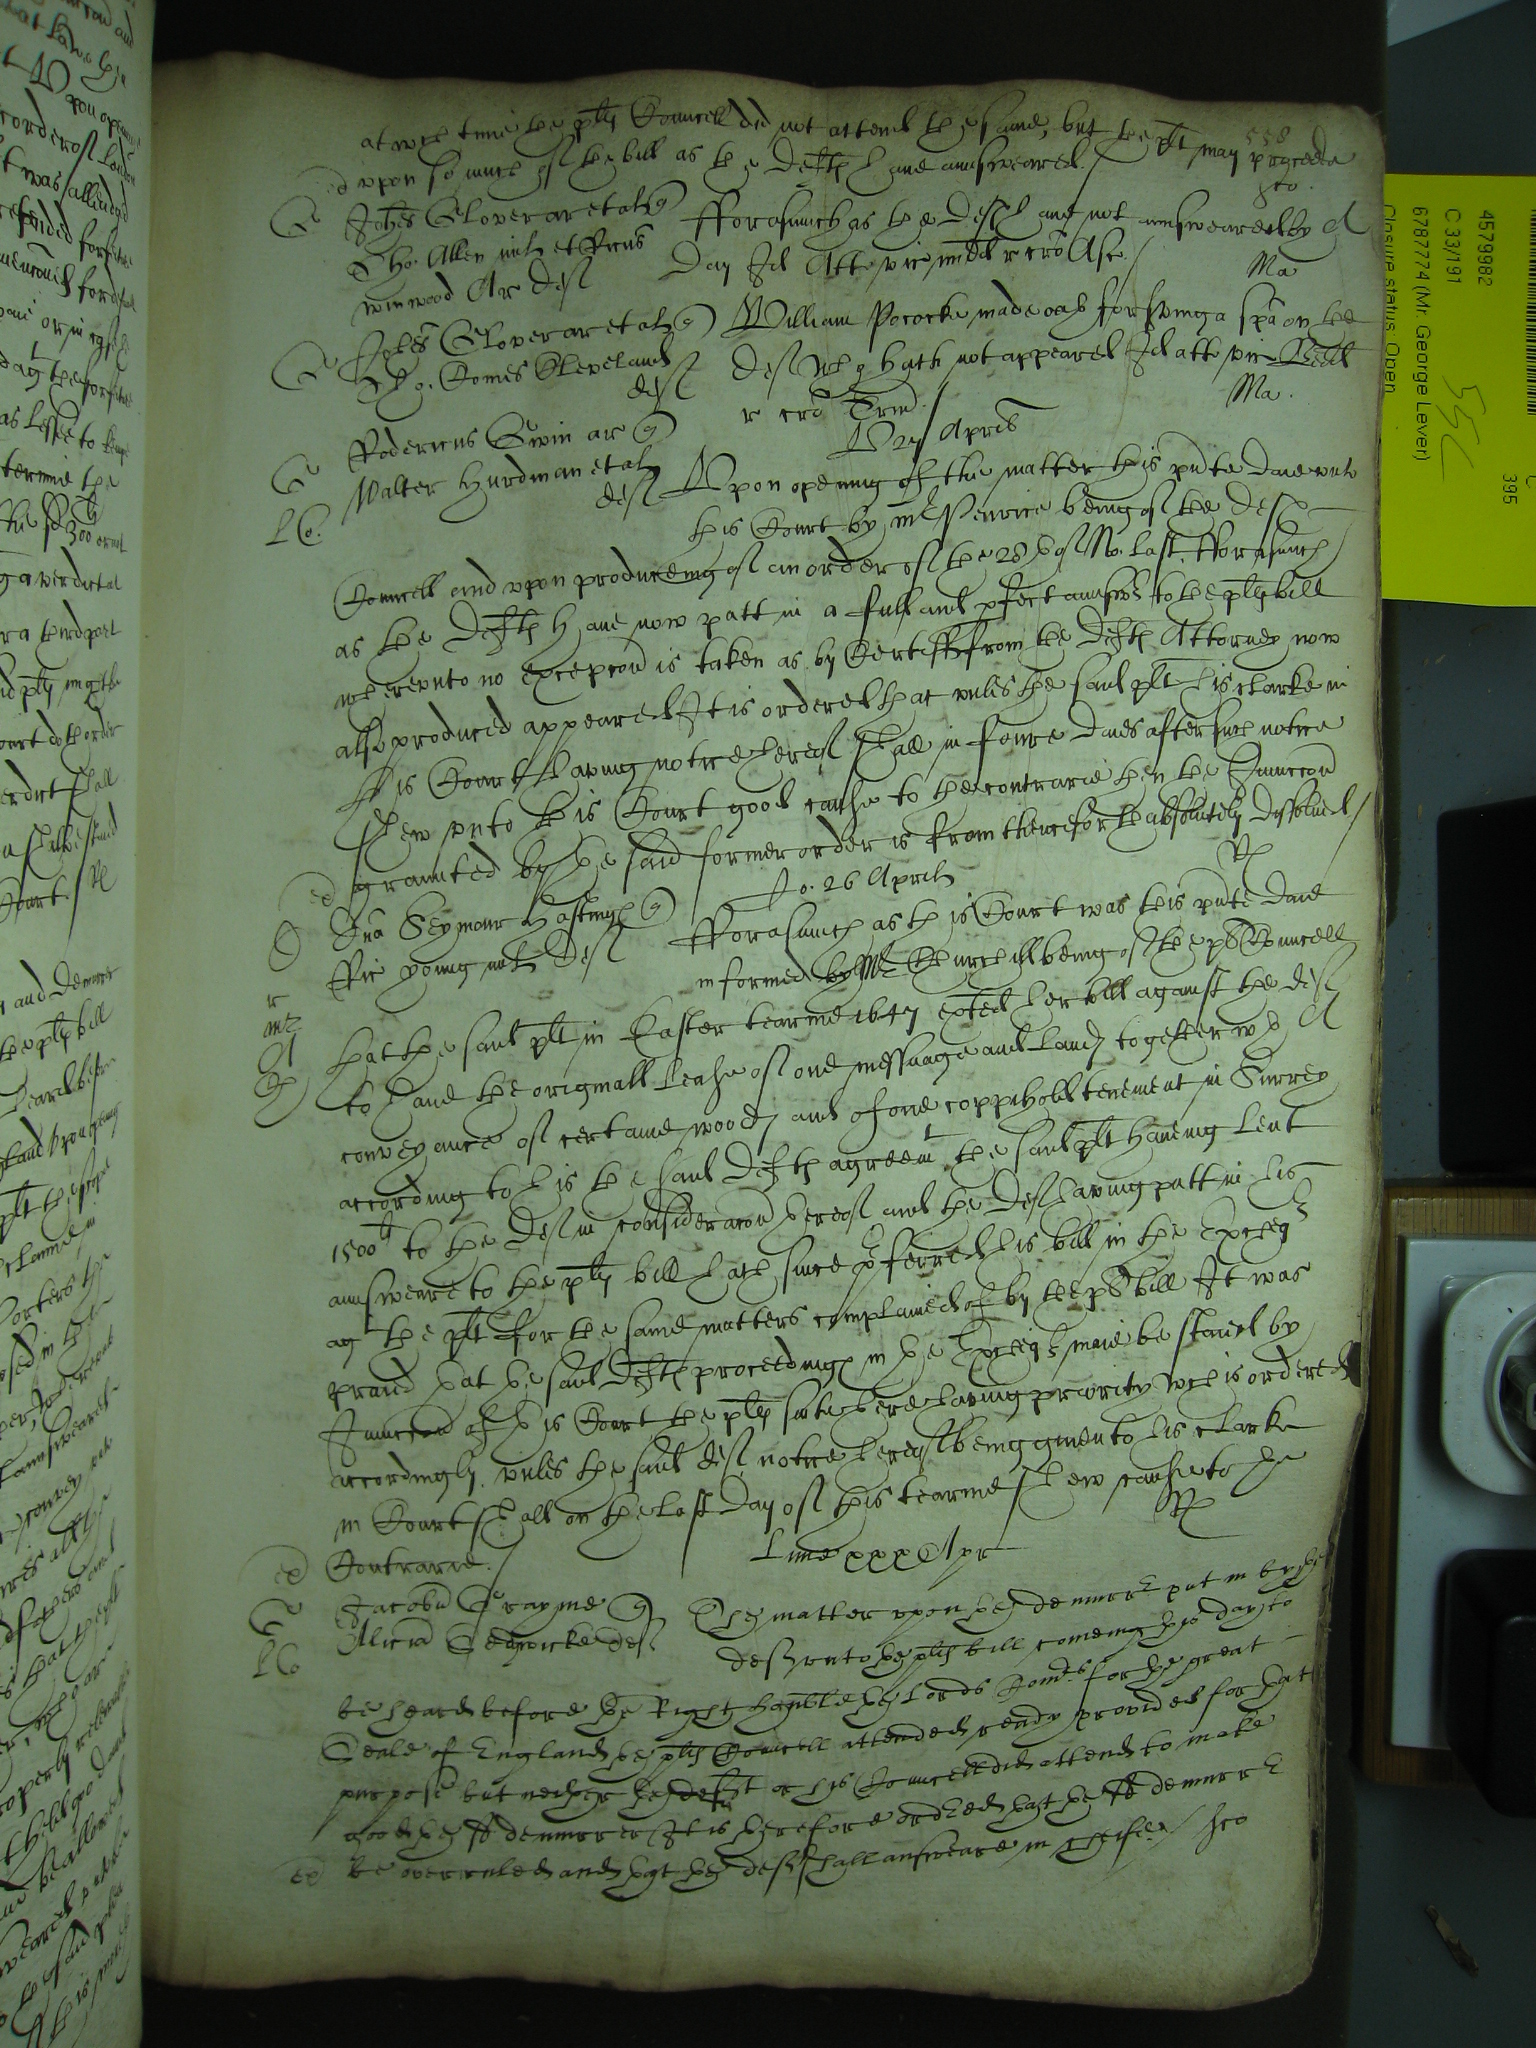 at wch time the plts Councell did not attend the same, but the plt may proceede
upon so much of the bill as the Defts have answeared. /
558
Johes Glover ar et al q Fforasmuch as the Deft have not answeared by
Tho. Allen milt et Ffrcus Day Id Atto vic midd r cro Asc /
winwood Ar Def Ma
Johes Glover ar et al q William Pococke made oath for serving a spa on the
Tho. Comes Cleveland Def who hath not appeared Id atto vic Bedd
def r cro Trin / Ma.
Rodericus Gwin ar q D 27 Aprilis
Walter Hurdman et al Upon opening of the matter this pnte daie unto
def this Court by mr being of the Def
Councell and upon produceing of an order of the 28th of No. last, Fforasmuch
as the Defts Have now putt in a full and pfect answer to the plts bill
whereunto no excepcon is taken as by Certiff from the Defts Attorney now
also produced appeared It is ordered that unles the said plt his clarke in
this Court having notice hereof shall in foure daies after such notice
shew unto this Court good cause to the contrarie then the Iniunccon
graunted by the said former order is from thenceforth absolutely dissolved /
Jo. 26 Aprilis
Seymour Hastings q Fforasmuch as this Court was this pnte daie
Ric young milt Def informed by Mr Churchill being of the pls Councell
that the said plt in Easter tearme 1647 exhted her bill against the def
to have the originall lease of one messuage and lands together wth
conveyance of certaine woods and of one coppihold tenement in Surrey
according to his the said Defts agreemt the said plt haveing lent
1500li to the Def in consideracon thereof and the Def having putt in his
answeare to the plts bill hath since pferred his bill in the Excheqr
agt the plt for the same matters complained of by the pls bill It was
praied that the said Defts proceedings in the Excheqr maie be staied by
Iniunccon of this Court the plts suite here having priority Wch is ordered
accordingly. unles the said def notice hereof being given to his clarke
in Court shall on the last day of this tearme shew cause to the
Contrarie. /
Lune xxx Apr
Jacobus Grayme q The matter upon the demurrer put in by the
Alicia Sedgwicke def def unto the plts bill comeing this day to
be heard before the Right honble the Lords Comrs for the great
Seale of England the plts Councell attended ready provided for that
purpose but neither the deft or his Councell did attend to make
good the sd demurrer It is therefore ordered that the sd demurrer
be overruled and that the def shall answeare in cheife /
4579982
C 33/191
6787774 (Mr. George Lever)
Closure status: Open
55C
395